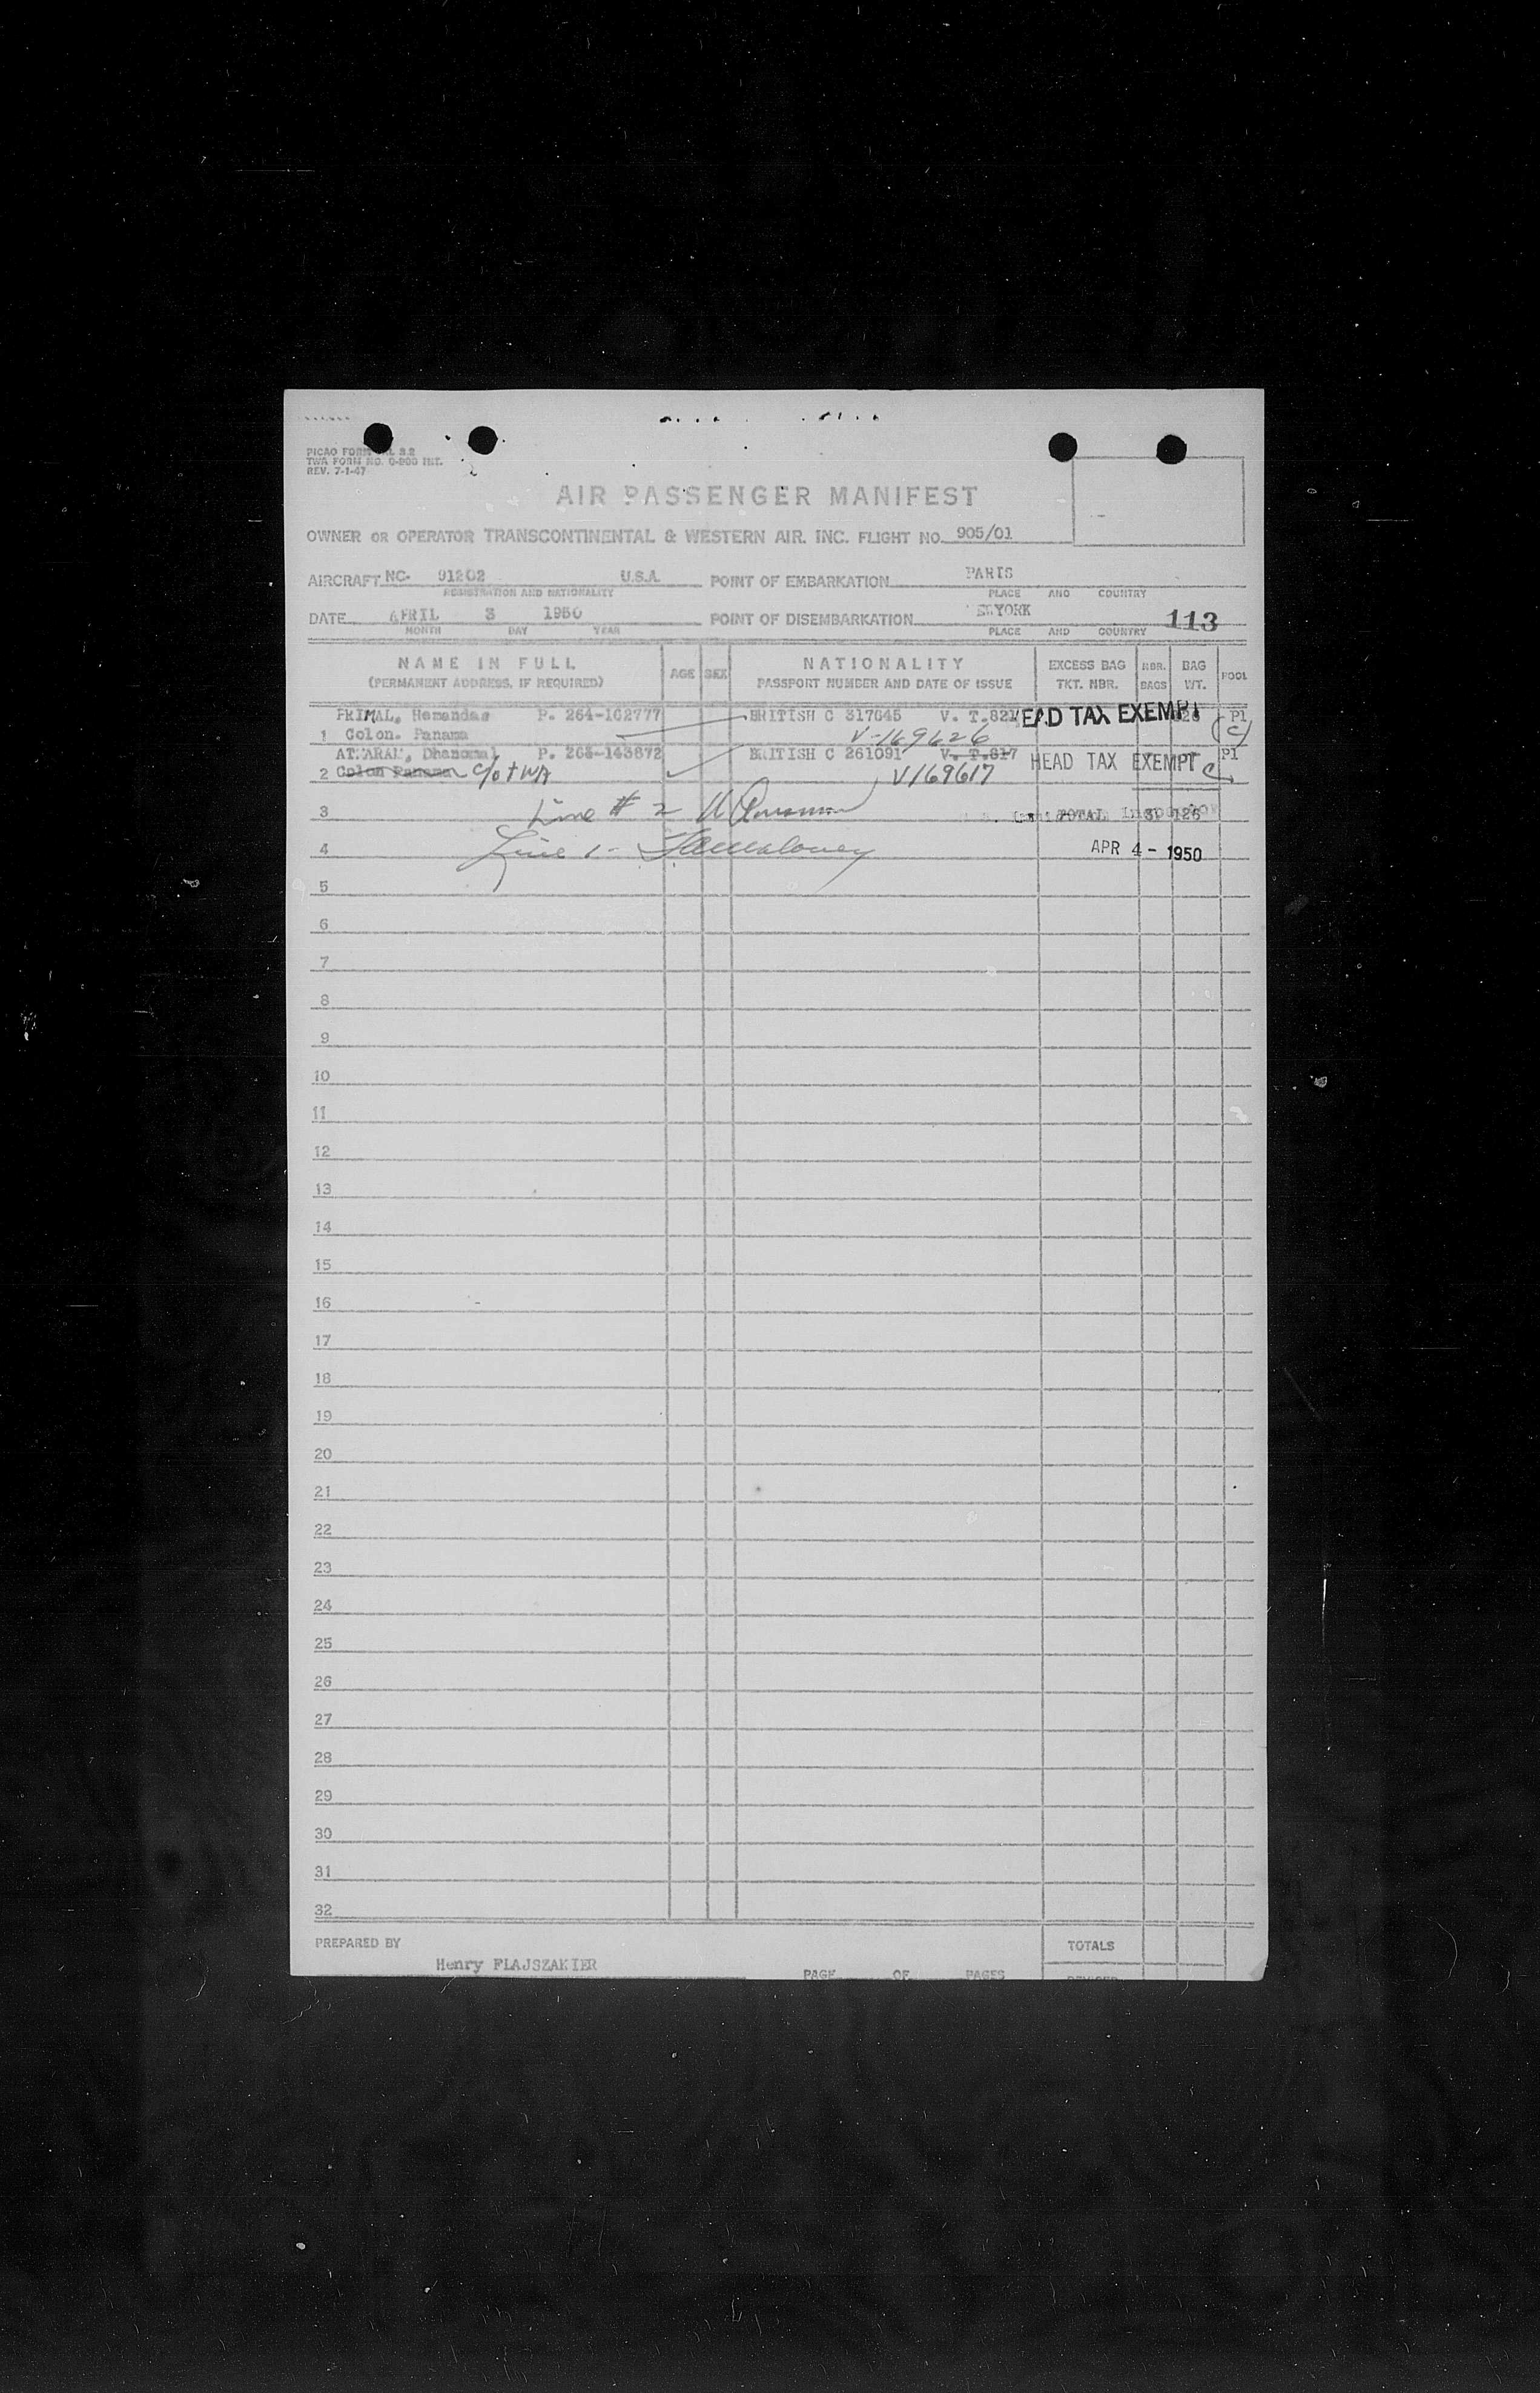 PICAO FORM
TWA FORM NO. 0-200 INT.
REV. 7-1-47
AIR PASSENGER MANIFEST
OWNER OR OPERATOR TRANSCONTINENTAL & WESTERN AIR. INC. FLIGHT NO. 905/01
AIRCRAFT NC- 91202 U.S.A. POINT OF EMBARKATION PARIS
REGISTRATION AND NATIONALITY PLACE AND COUNTRY
DATE APRIL 3 1950 POINT OF DISEMBARKATION EWYORK 113
MONTH DAY YEAR PLACE AND COUNTRY
NAME IN FULL AGE SEX NATIONALITY EXCESS BAG NBR. BAG POOL
(PERMANENT ADDRESS, IF REQUIRED) PASSPORT NUMBER AND DATE OF ISSUE TKT. NBR. BAGS WT.
PRIMAL, Hemandas P. 264-102777 BRITISH C 317645 V. T.821 HEAD TAX EXEMPT P1
1 Colon. Panama V-169626 C
Dhanomal P. 264-143872 BRITISH C 261091 V. T.817 HEAD TAX EXEMPT P1
2 Colon Panama C/o TWA V169617 C
3 Line # 2 TOTAL 3 126
4 Line 1- APR 4- 1950
5
6
7
8
9
10
11
12
13
14
15
16
17
18
19
20
21
22
23
24
25
26
27
28
29
30
31
32
PREPARED BY TOTALS
Henry FLAJSZAKIER
PAGE OF PAGES